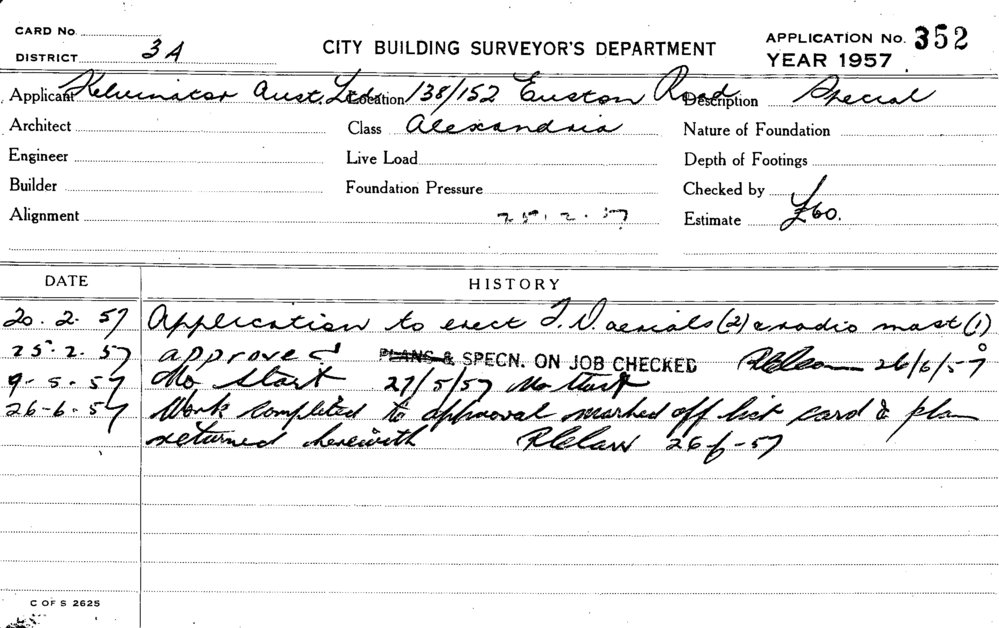 CARD No.
CITY BUILDING SURVEYOR'S DEPARTMENT
APPLICATION No. 352
DISTRICT 3A
YEAR 1957
Applicant Kelvinator Aust. Ltd. Location 138/152 Euston Road Description Special
Architect Class Alexandria Nature of Foundation
Engineer Live Load Depth of Footings
Builder Foundation Pressure Checked by
Alignment 25.2.57 Estimate £60.
DATE HISTORY
20.2.57 Application to erect T.V. aerials (2) & radio mast (1)
25.2.57 approved PLANS & SPECN. ON JOB CHECKED 26/6/57
9-5-57 No start 27/5/57 No start
26-6-57 Work completed to approval marked off list card & plan
returned herewith 26-6-57
C OF S 2625